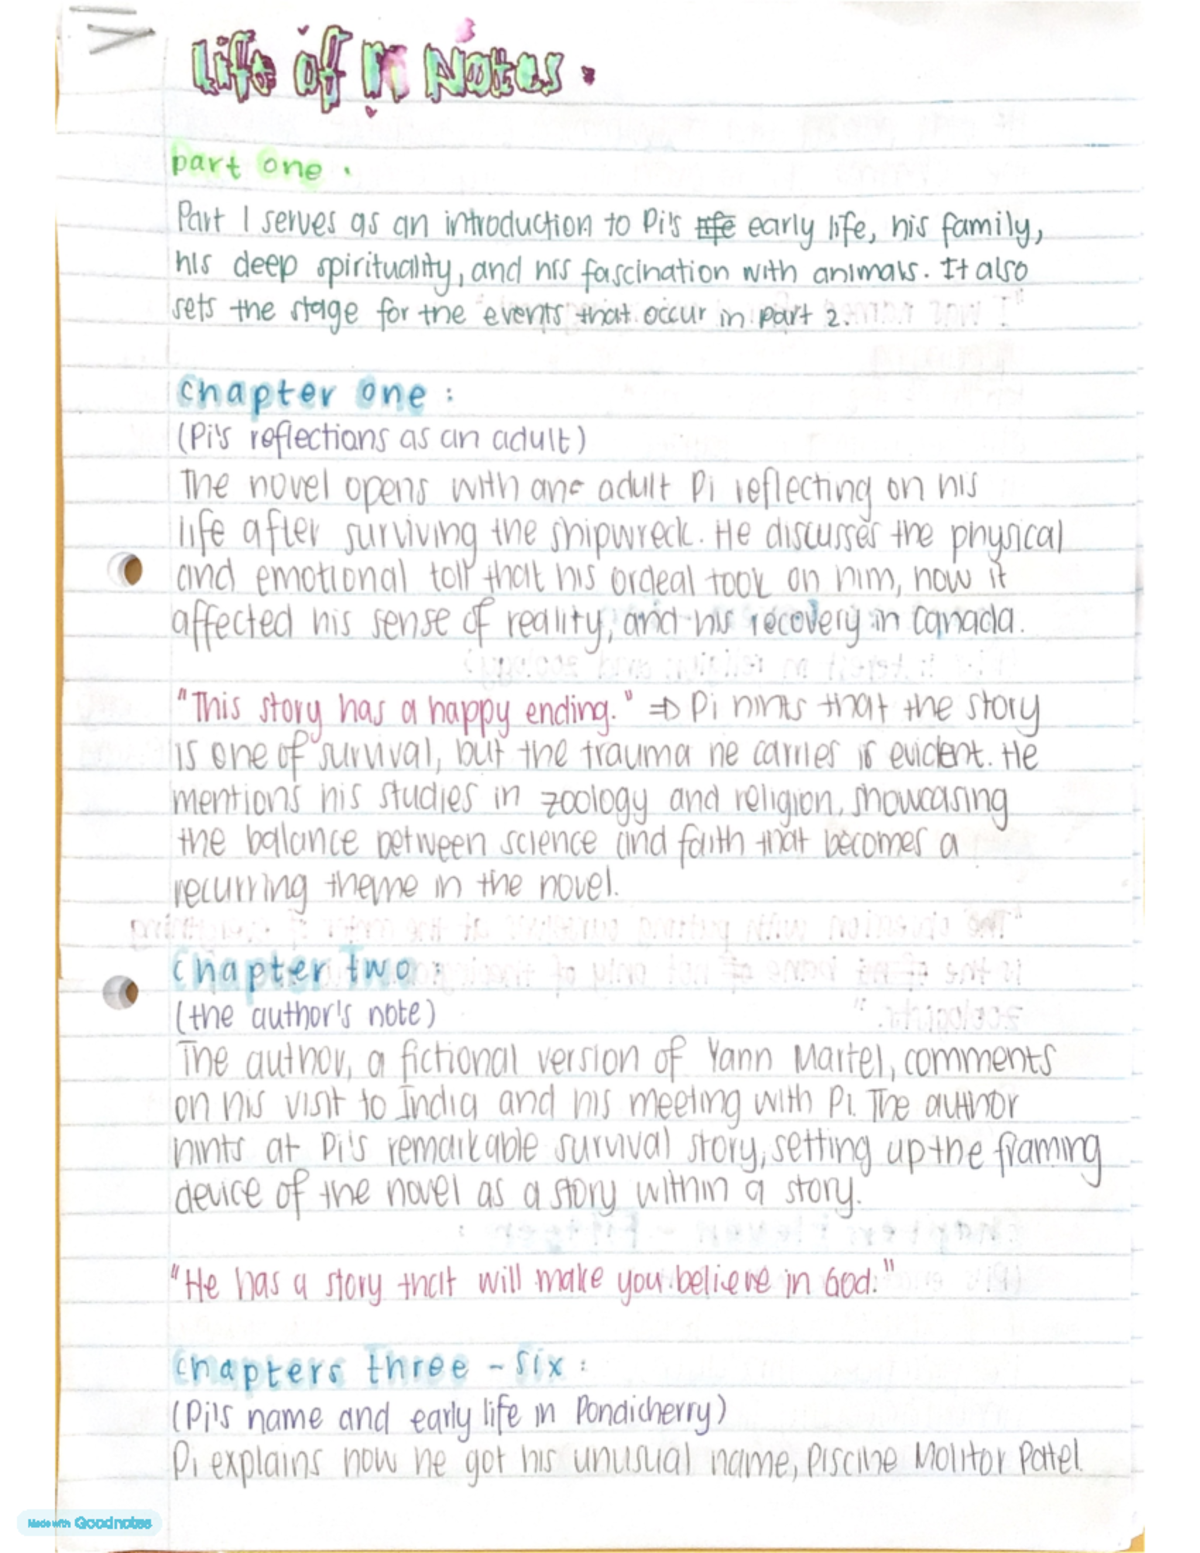 Life of Pi Notes.
part one.
Part 1 serves as an introduction to Pi's life early life, his family,
his deep spirituality, and his fascination with animals. It also
sets the stage for the events that occur in part 2.
Chapter one:
(Pi's reflections as an adult)
The novel opens with an adult Pi reflecting on his
life after surviving the shipwreck. He discusses the physical
and emotional toll that his ordeal took on him, how it
affected his sense of reality, and his recovery in Canada.
"This story has a happy ending." ⇒ Pi hints that the story
is one of survival, but the trauma he carries is evident. He
mentions his studies in zoology and religion, showcasing
the ballance between science and faith that becomes a
recurring theme in the novel.
Chapter Two:
(the author's note)
The author, a fictional version of Yann Martel, comments
on his visit to India and his meeting with Pi. The author
hints at Pi's remarkable survival story, setting up the framing
device of the novel as a story within a story.
"He has a story that will make you believe in God."
Chapters three - six:
(Pi's name and early life in Pondicherry)
Pi explains how he got his unusual name, Piscine Molitor Patel.
Made with Goodnotes